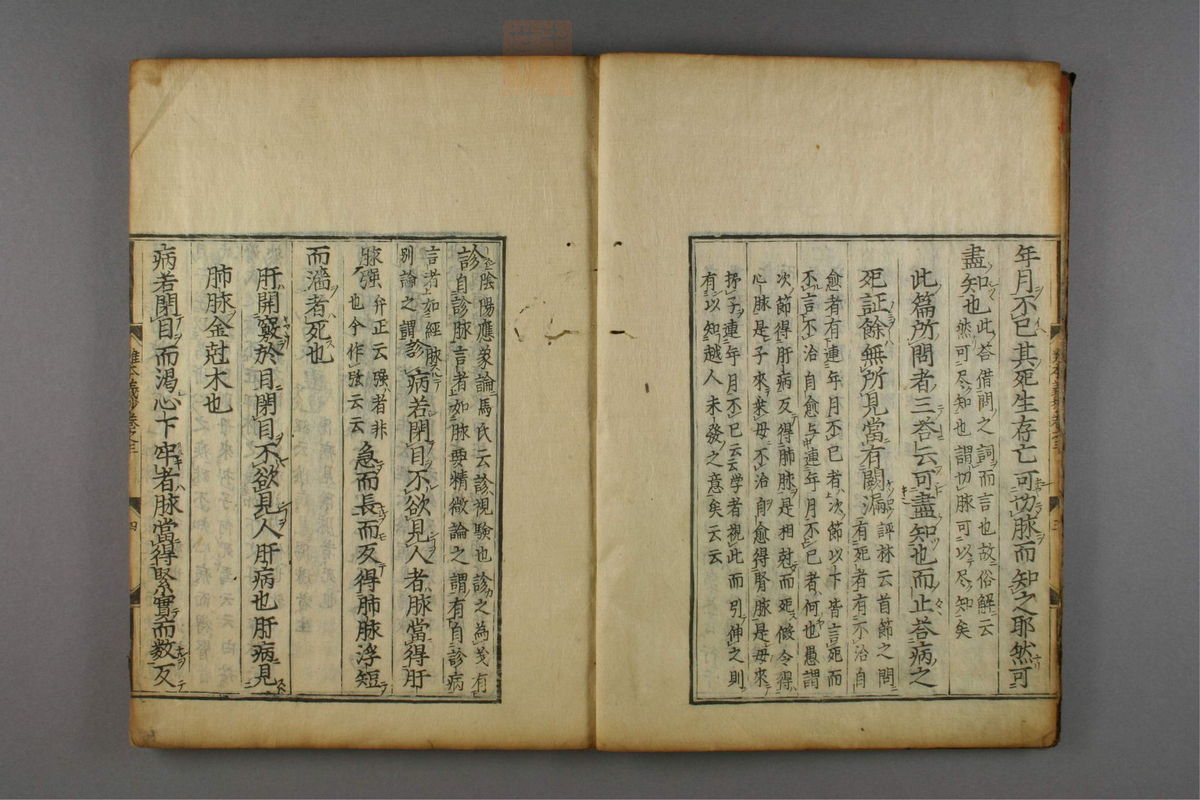 年月不已其死生存亡可切脉而知之耶然可
盡知也此答借問之詞而言也故俗解云
然可尽知也謂切脉可以尽知矣
此篇所問者三荅云可盡知也而止荅病之
死証餘無所見當有闕漏評林云首節之問
有死者有不治自
愈者有連年月不已者次節以下皆言死而
不言不治自愈与連年月不已者何也愚謂
次節得肝病反得肺脉是相尅而死倣令得
心脉是子來乗母不治自愈得腎脉是母來
抒子連年月不已云云学者視此而引伸之則
有以知越人未發之意矣云云
診陰陽應象論馬氏云診視験也診之為義有
自診脉言者如脉要精微論之謂有自診病
言者如經脉
別論之謂診病若閉目不欲見人者脉當得肝
脉强弁正云强者非
也今作弦云云急而長而反得肺脉浮短
而濇者死也
肝開竅於目閉目不欲見人肝病也肝病見
肺脉金尅木也
病若閉目而渴心下牢者脉當得緊實而数反
卷之三
四